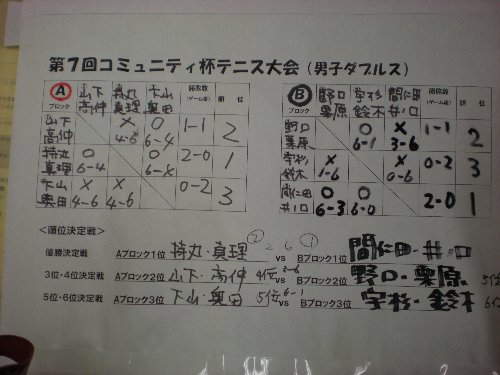 第7回コミュニティ杯テニス大会(男子ダブルス)
A ブロック 山下 高仲 持丸 真理 下山 奥田 勝敗数(ゲーム差) 順位
山下 高仲 × 4-6 ○ 6-4 1-1 2
持丸 真理 ○ 6-4 ○ 2-0 1
下山 奥田 × 4-6 × 4-6 0-2 3
B ブロック 野口 栗原 宇杉 鈴木 間仁田 井ノ口 勝敗数(ゲーム差) 順位
野口 栗原 ○ 6-1 × 3-6 1-1 2
宇杉 鈴木 × 1-6 × 0-6 0-2 3
間仁田 井ノ口 ○ 6-3 ○ 6-0 2-0 1
<順位決定戦>
優勝決定戦 Aブロック1位 持丸・真理 ② 2-6 ① vs Bブロック1位 間仁田・井ノ口
3位・4位決定戦 Aブロック2位 山下・高仲 4位 vs Bブロック2位 野口・栗原
5位・6位決定戦 Aブロック3位 下山・奥田 5位 6-1 vs Bブロック3位 宇杉・鈴木